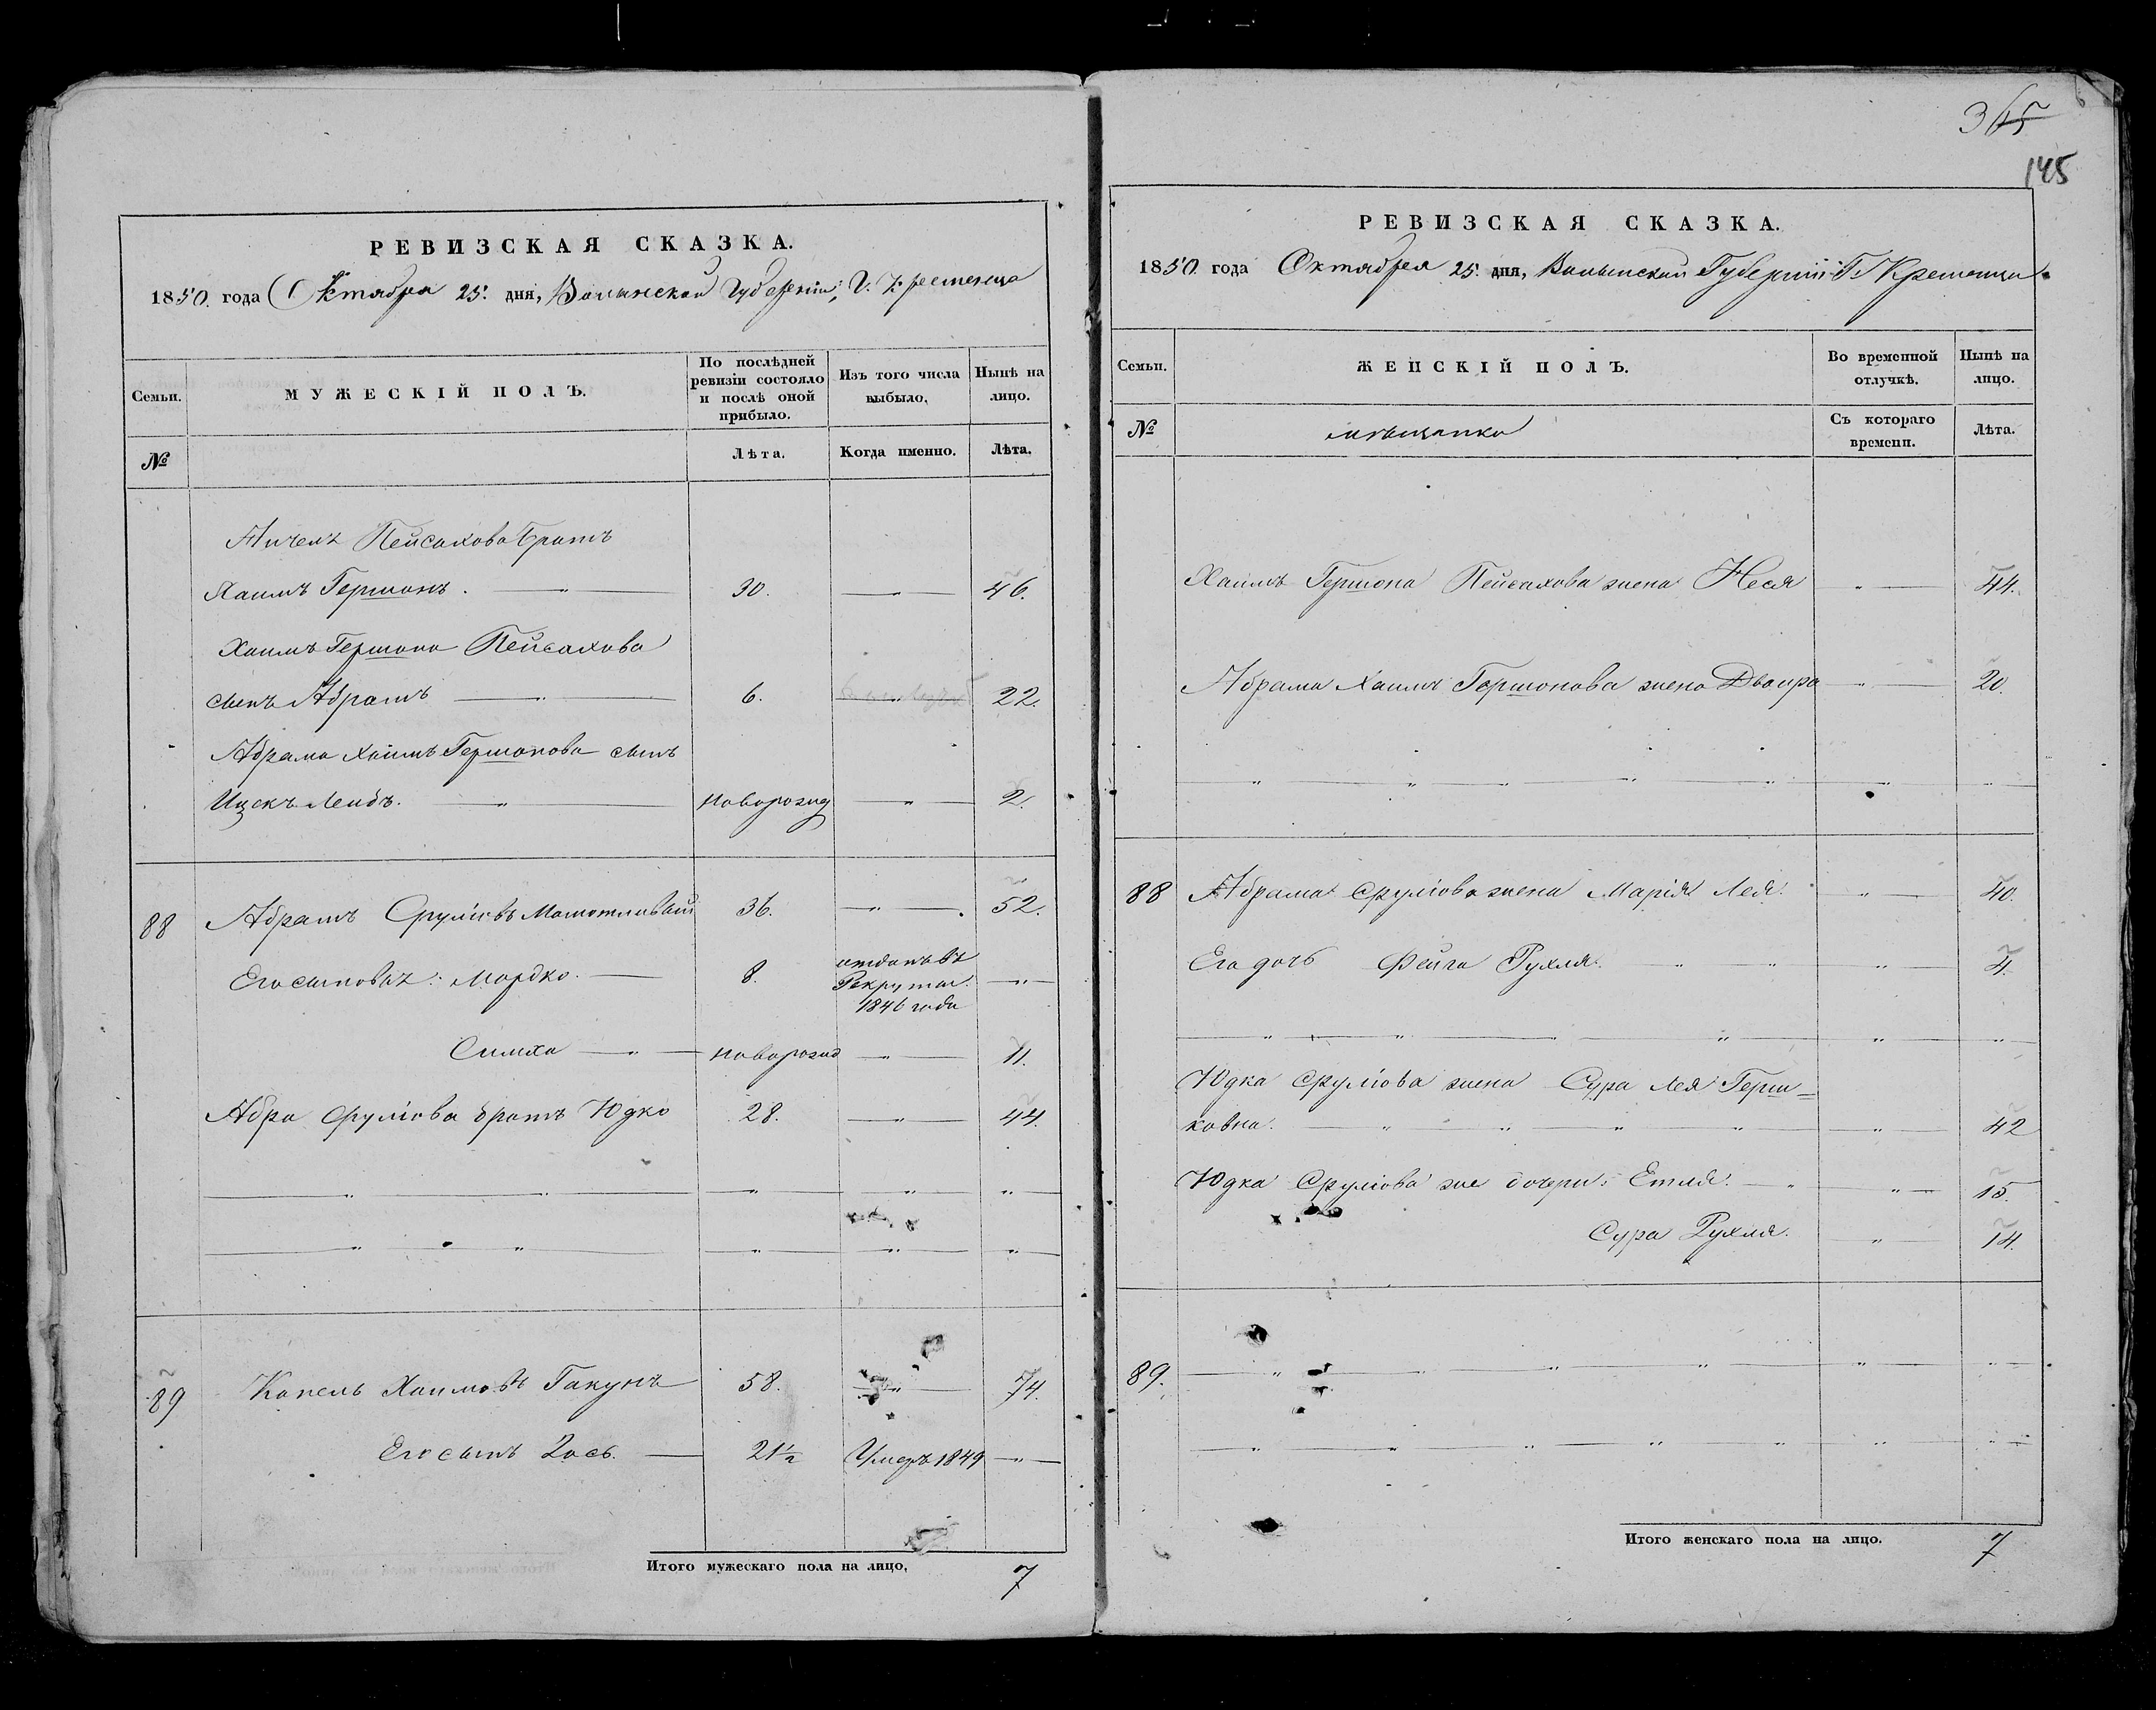 РЕВИЗСКАЯ СКАЗКА.
1850. года Октября 25. дня, Волынской Губерніи, Г. Кременца
Семьи. МУЖЕСКІЙ ПОЛЪ. По послѣдней ревизіи состояло и послѣ оной прибыло. Изъ того числа выбыло. Нынѣ на лицо.
№ Лѣта. Когда именно. Лѣта.
Пейсахова братъ
Хаимъ Гершонъ. 30. 46.
Хаимъ Гершона Пейсахова
сынъ Абрамъ 6. 22.
Абрама Хаимъ Гершонова сынъ
Ицекъ Лейбъ. новорожд 2.
88 Абрамъ Сруліовъ 36. 52.
Его сыновьѧ: Мордко. 8. отданъ въ
Рекруты
1846 года
Симха новорожд 11.
Абра Сруліова братъ Юдко 28. 44.
89 Копель Хаимовъ Гакунъ 58. 74.
Его сынъ Зось. 21½ Умеръ 1849
Итого мужескаго пола на лицо, 7
365
145
РЕВИЗСКАЯ СКАЗКА.
1850. года Октября 25. дня, Волынской Губерніи Г. Кременца.
Семьи. ЖЕНСКІЙ ПОЛЪ. Во временной отлучкѣ. Нынѣ на лицо.
№ мѣщанки Съ котораго времени. Лѣта.
Хаимъ Гершона Пейсахова жена Неся 44.
Абрама Хаимъ Гершонова жена Двойра 20.
88 Абрама Сруліова жена Марія Лея. 40.
Его дочь Фейга Рухля. 4.
Юдка Сруліова жена Сура Лея Герш-
ковна. 42
Юдка Сруліова же дочери: Етля. 15.
Сура Рухля. 14.
89.
Итого женскаго пола на лицо. 7